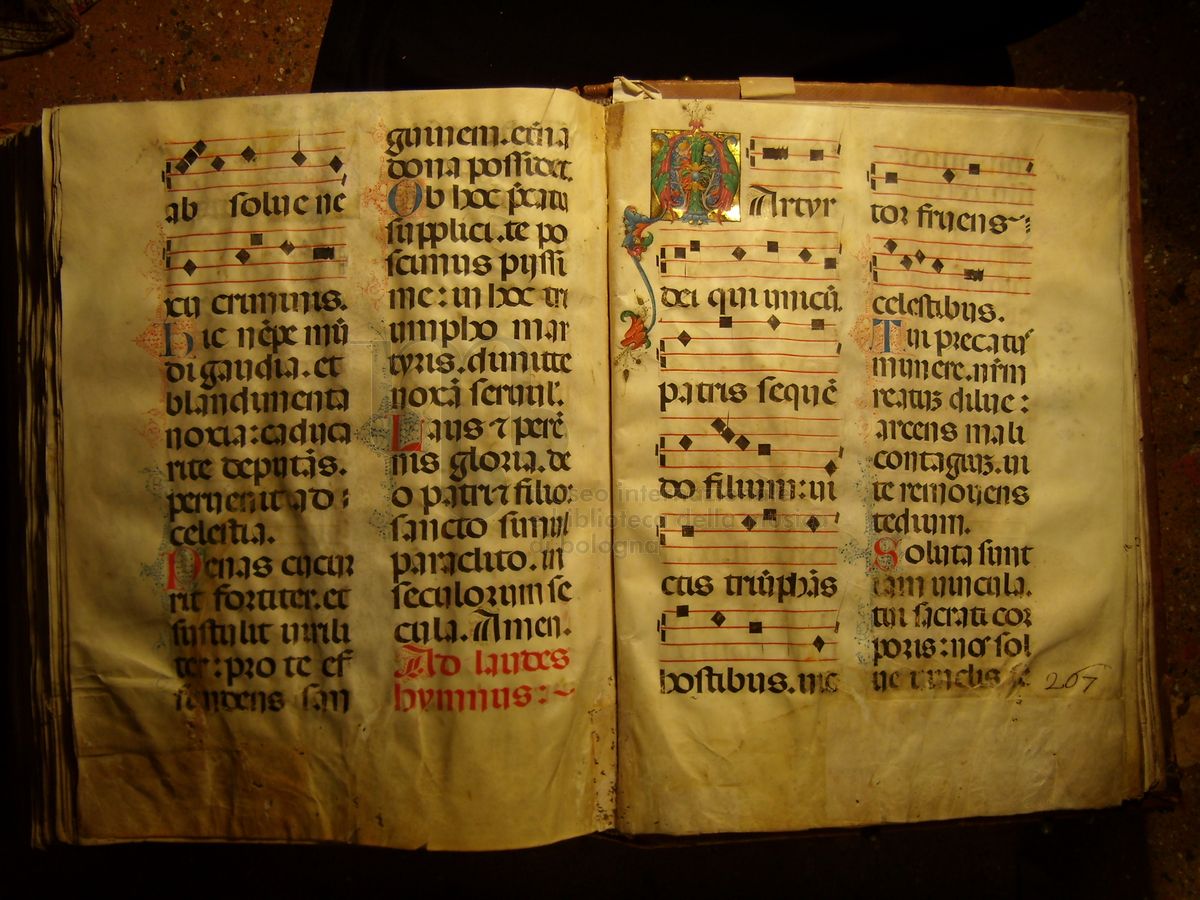 ab solue ne
xu criminis.
Hic nẽpe mũ
di gaudia. et
blandimenta
noxia: caduca
rite deputãs.
peruenit ad :
celestia.
Penas cucur
rit fortiter. et
sustulit uirili
ter: pro te ef
fundens san
guinem. et̃na
dona possidet.
Ob hoc p̃catu
supplici. te po
scimus pijssi
me: in hoc tri
umpho mar
tyris. dimitte
noxã seruul.
Laus ⁊ perẽ
nis gloria. de
o patri ⁊ filio:
sancto simul
paraclito. in
seculorum se
cula. Amen.
Ad laudes
hymnus: ~
MArtyr
dei qui unicũ.
patris sequẽ
do filium: ui
ctis triũphãs
hostibus. uic
tor fruens
celestibus.
Tui precatus
munere. nr̃m
reatuꝫ dilue :
arcens mali
contagiuꝫ. ui
te remouens
tedium.
Soluta sunt
iam uincula.
tui sacrati cor
poris: nos sol
ue uinclis se
267
museo internazionale
e biblioteca della musica
di bologna